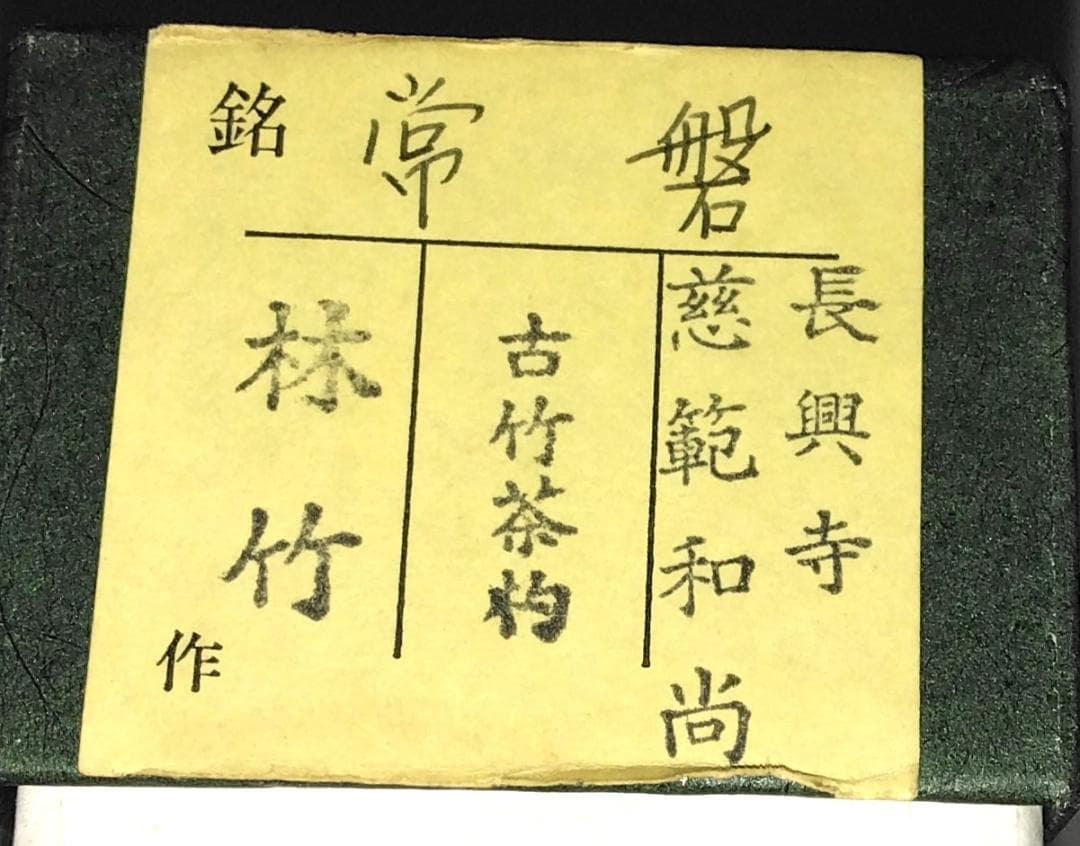 銘 常 磐
長興寺
慈範和尚
古竹茶杓
林竹
作